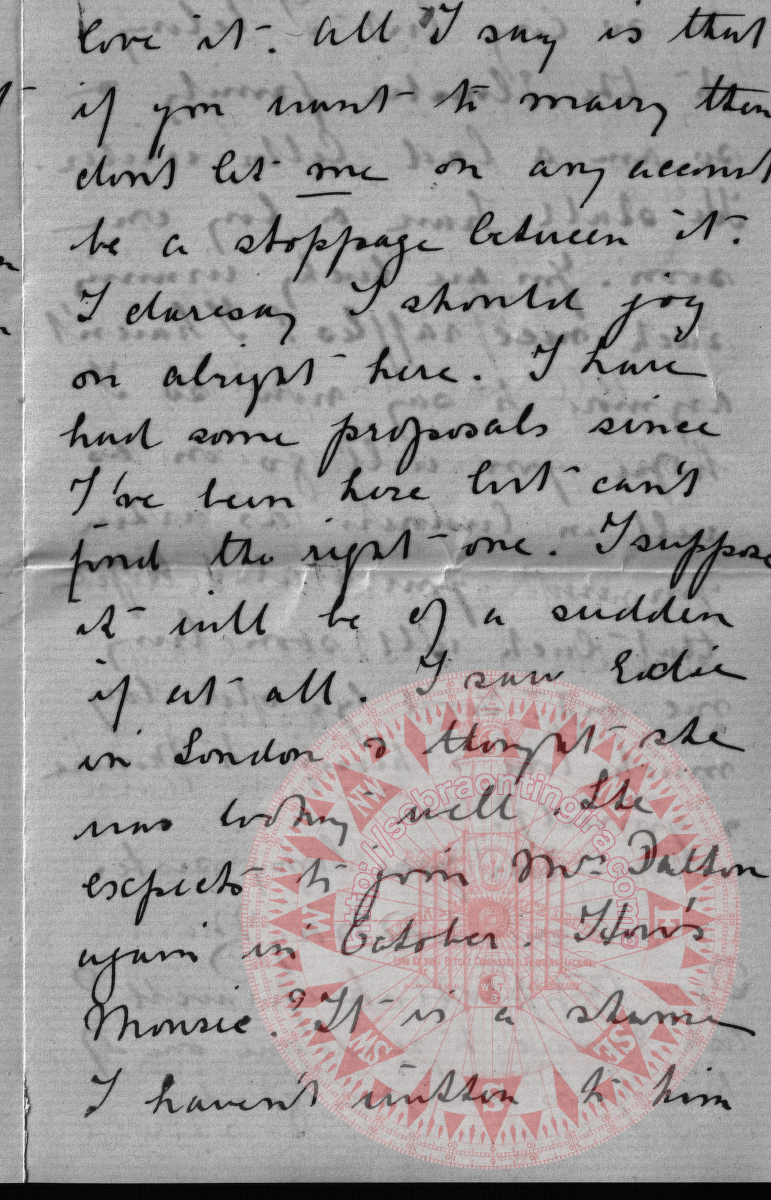 love it. All I say is that
if you want to marry then
don't let me on any account
be a stoppage between it.
I daresay I should jog
on alright here. I have
had some proposals since
I've been here but can't
find the right one. I suppose
it will be of a sudden
if at all. I saw Eadie
in London & thought she
was looking well. She
expects to join Mrs Dalton
again in October. How's
Monsie? It is a shame
I haven't written to him
http://sabraontingira.com